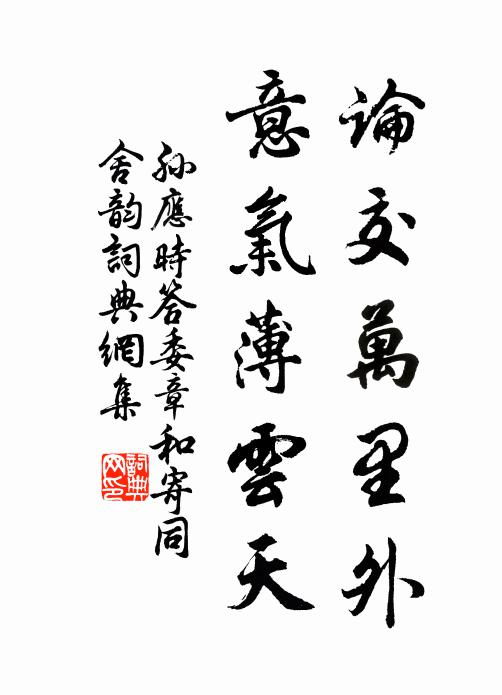 論交萬里外
意氣薄雲天
孫應時答委章和寄同
舍韵詞典網集
詞典
网印